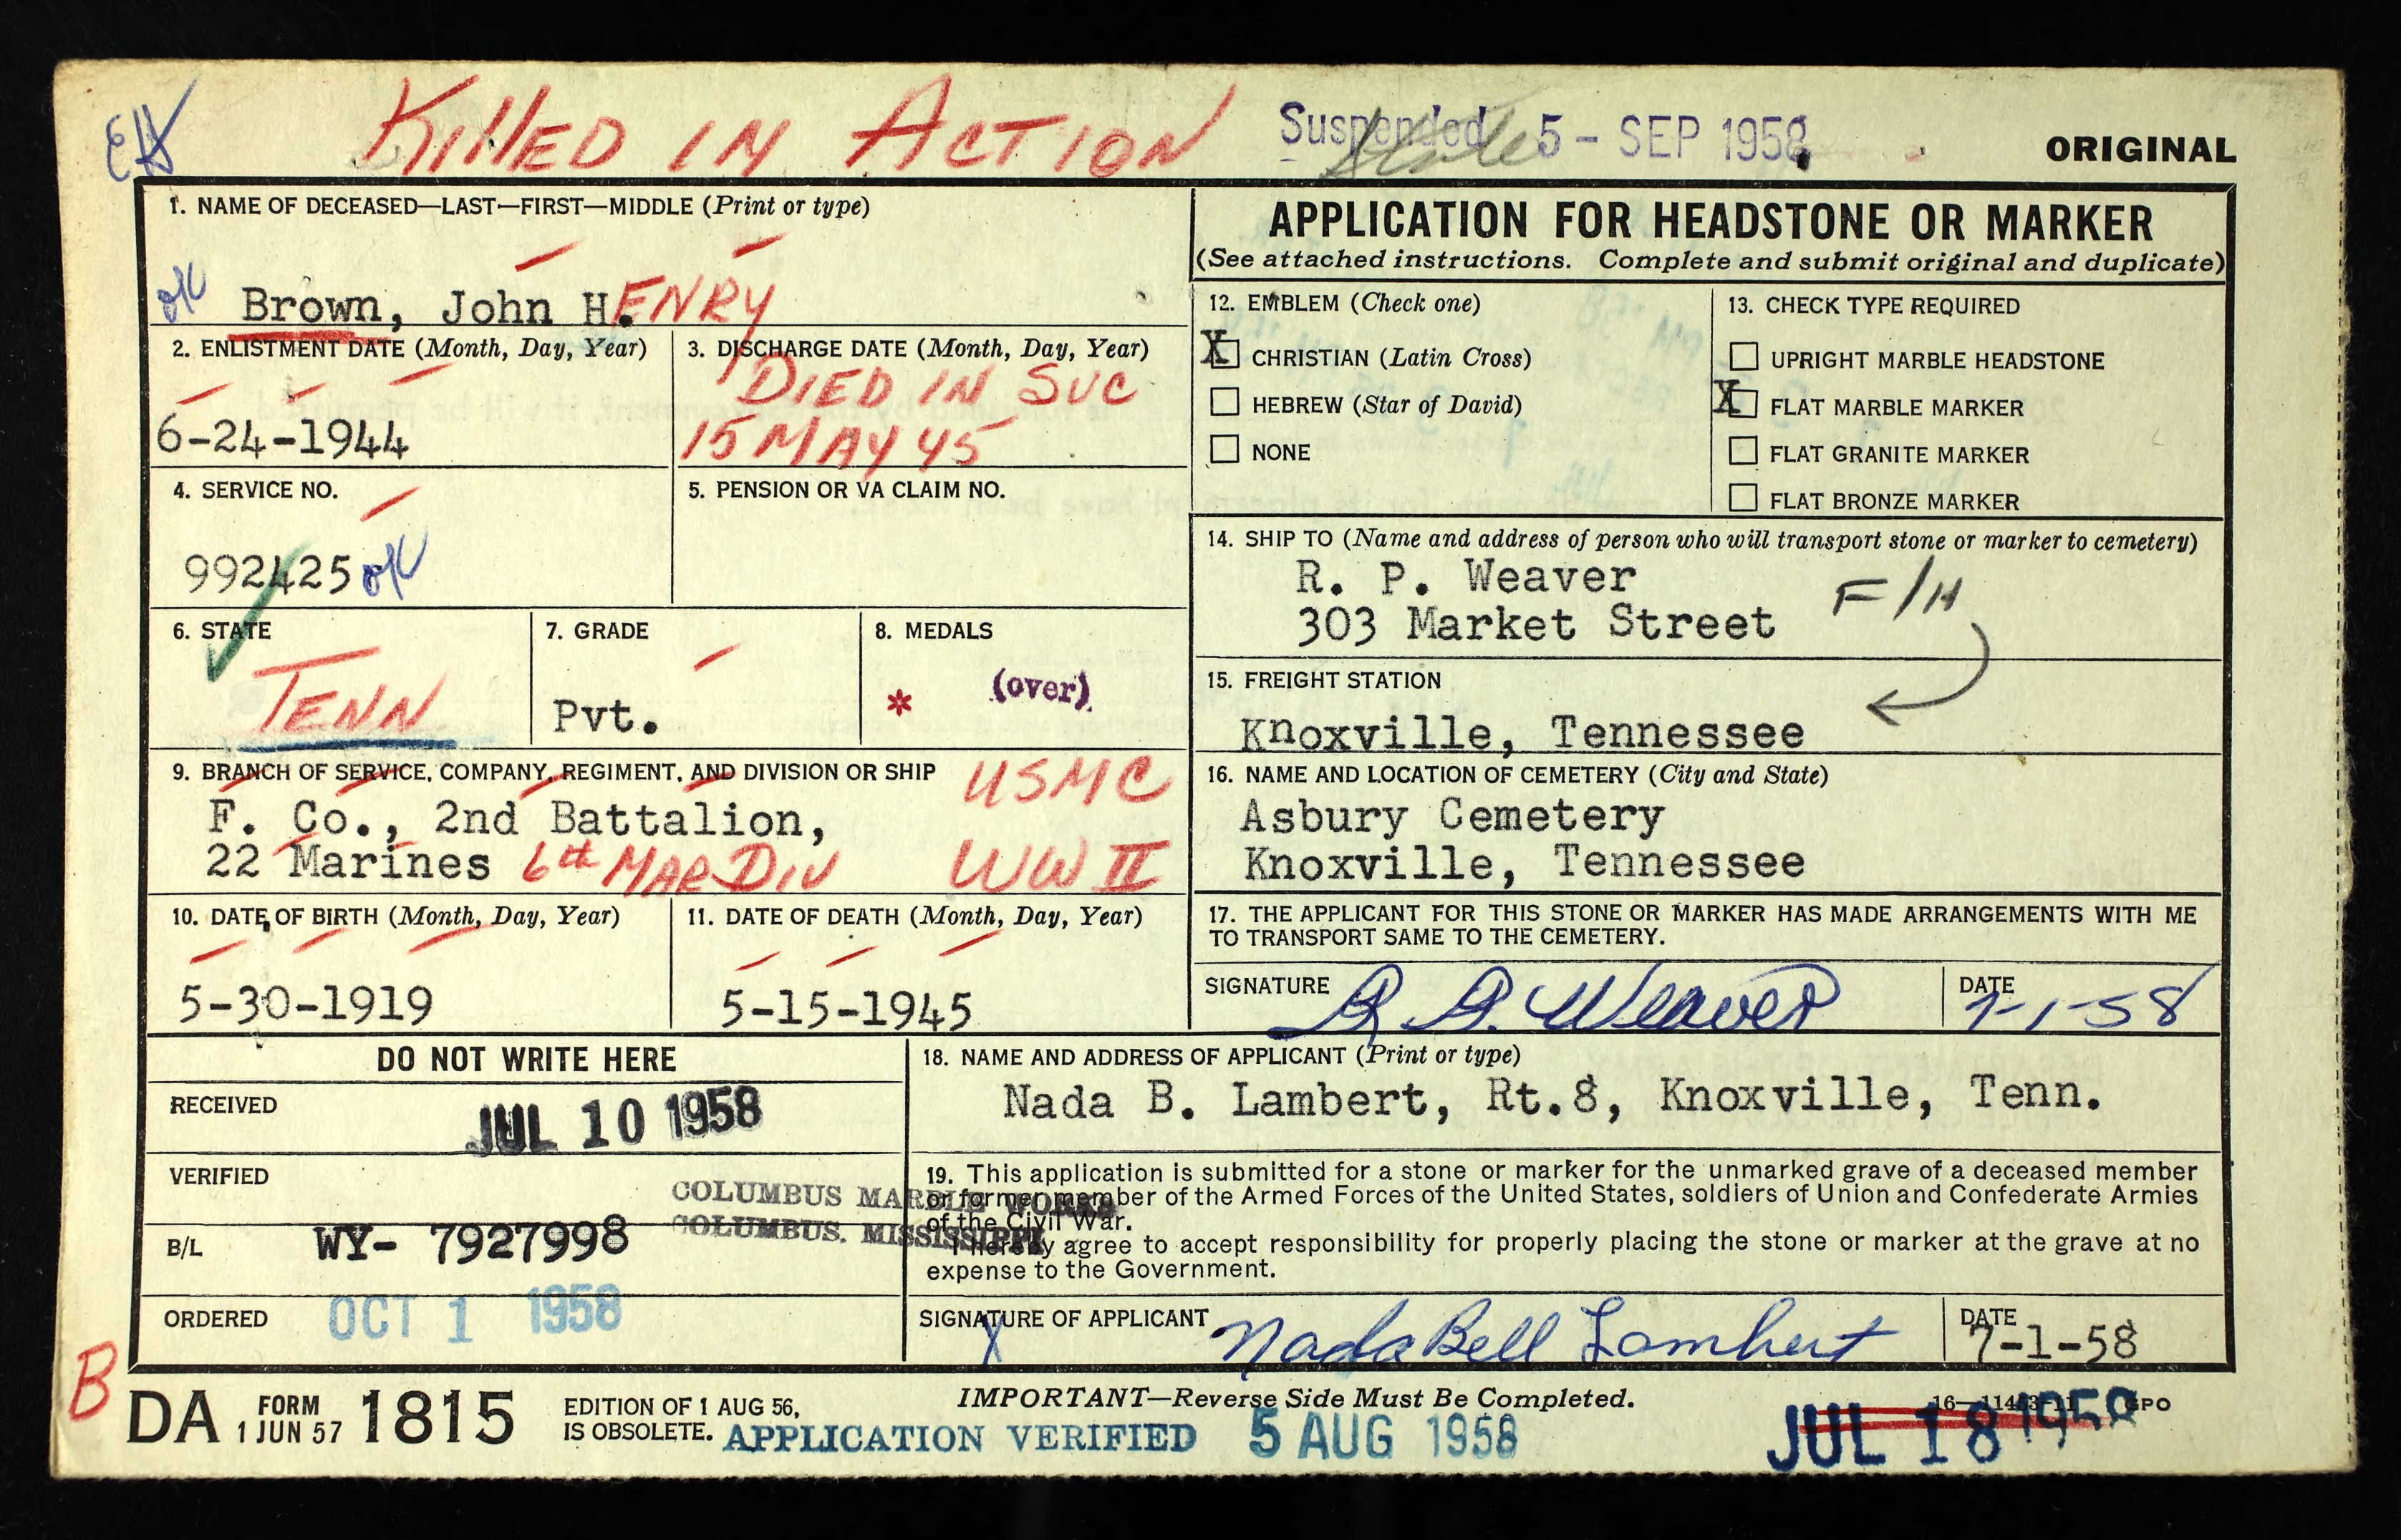 EH
KILLED IN ACTION
Suspended 5 - SEP 1958
ORIGINAL
1. NAME OF DECEASED—LAST—FIRST—MIDDLE (Print or type)
ok Brown, John H.ENRY
2. ENLISTMENT DATE (Month, Day, Year)
6-24-1944
3. DISCHARGE DATE (Month, Day, Year)
DIED IN SVC
15 MAY 45
4. SERVICE NO.
992425 ok
5. PENSION OR VA CLAIM NO.
6. STATE
TENN
7. GRADE
Pvt.
8. MEDALS
* (over)
9. BRANCH OF SERVICE, COMPANY, REGIMENT, AND DIVISION OR SHIP
USMC
F. Co., 2nd Battalion,
22 Marines 6th MAR DIV WW II
10. DATE OF BIRTH (Month, Day, Year)
5-30-1919
11. DATE OF DEATH (Month, Day, Year)
5-15-1945
APPLICATION FOR HEADSTONE OR MARKER
(See attached instructions. Complete and submit original and duplicate)
12. EMBLEM (Check one)
X CHRISTIAN (Latin Cross)
HEBREW (Star of David)
NONE
13. CHECK TYPE REQUIRED
UPRIGHT MARBLE HEADSTONE
X FLAT MARBLE MARKER
FLAT GRANITE MARKER
FLAT BRONZE MARKER
14. SHIP TO (Name and address of person who will transport stone or marker to cemetery)
R. P. Weaver
303 Market Street
F/H
15. FREIGHT STATION
Knoxville, Tennessee
16. NAME AND LOCATION OF CEMETERY (City and State)
Asbury Cemetery
Knoxville, Tennessee
17. THE APPLICANT FOR THIS STONE OR MARKER HAS MADE ARRANGEMENTS WITH ME
TO TRANSPORT SAME TO THE CEMETERY.
SIGNATURE R. P. Weaver
DATE 7-1-58
DO NOT WRITE HERE
RECEIVED
JUL 10 1958
VERIFIED
COLUMBUS MARBLE WORKS
COLUMBUS, MISSISSIPPI
B/L WY- 7927998
ORDERED OCT 1 1958
18. NAME AND ADDRESS OF APPLICANT (Print or type)
Nada B. Lambert, Rt.8, Knoxville, Tenn.
19. This application is submitted for a stone or marker for the unmarked grave of a deceased member
or former member of the Armed Forces of the United States, soldiers of Union and Confederate Armies
of the Civil War.
I hereby agree to accept responsibility for properly placing the stone or marker at the grave at no
expense to the Government.
SIGNATURE OF APPLICANT X Nada Bell Lambert
DATE 7-1-58
B
DA FORM 1 JUN 57 1815
EDITION OF 1 AUG 56,
IS OBSOLETE.
IMPORTANT—Reverse Side Must Be Completed.
GPO
APPLICATION VERIFIED 5 AUG 1958
JUL 18 1958